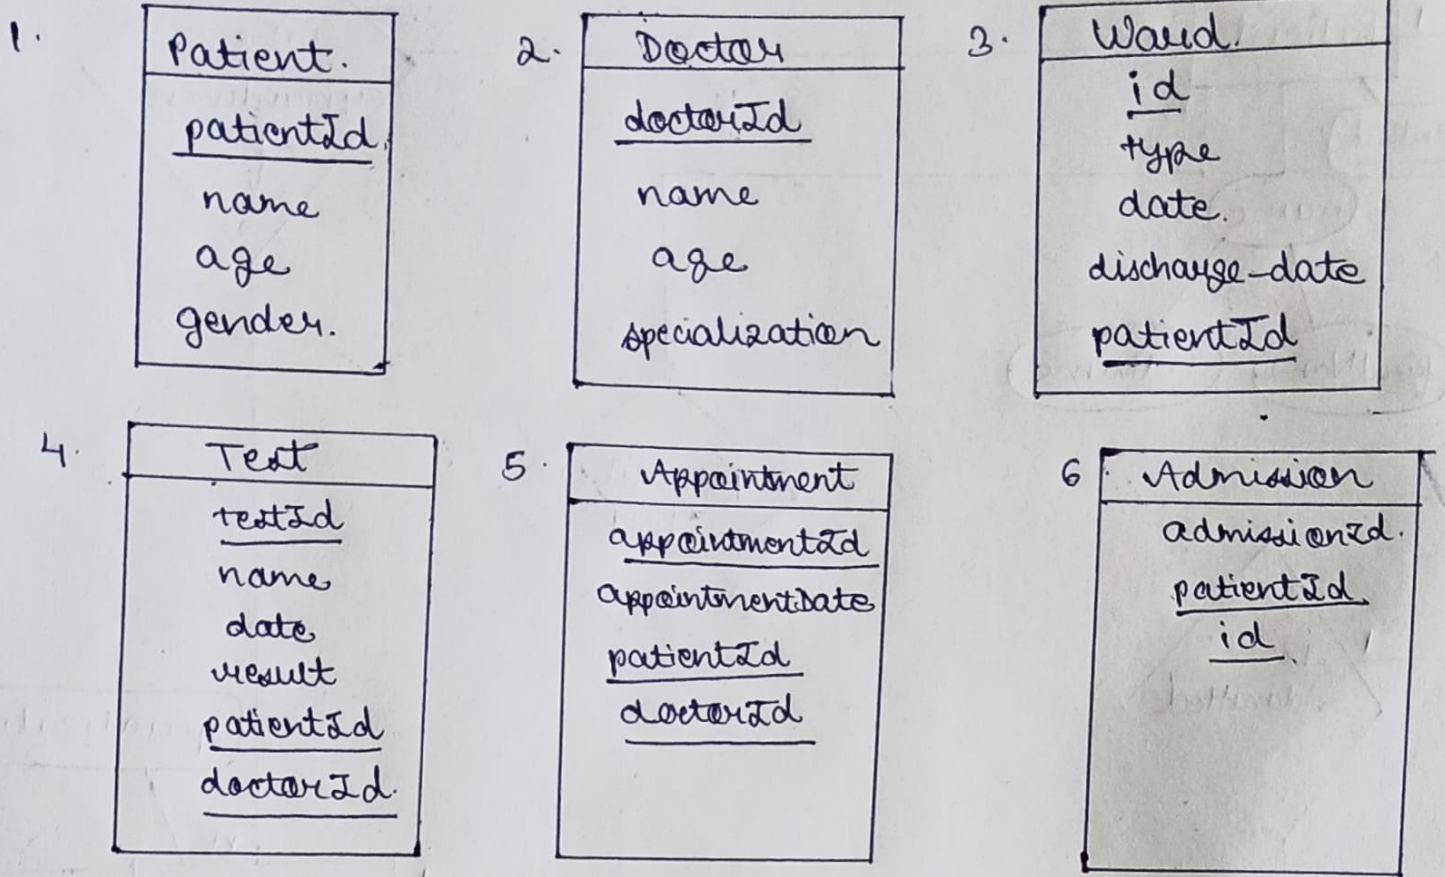 1.
Patient.
patientId
name
age
gender.
2.
Doctor
doctorId
name
age
specialization
3.
Ward.
id
type
date.
discharge-date
patientId
4.
Test
testId
name
date
result
patientId
doctorId.
5.
Appointment
appointmentId
appointmentDate
patientId
doctorId
6.
Admission
admissionId.
patientId
id